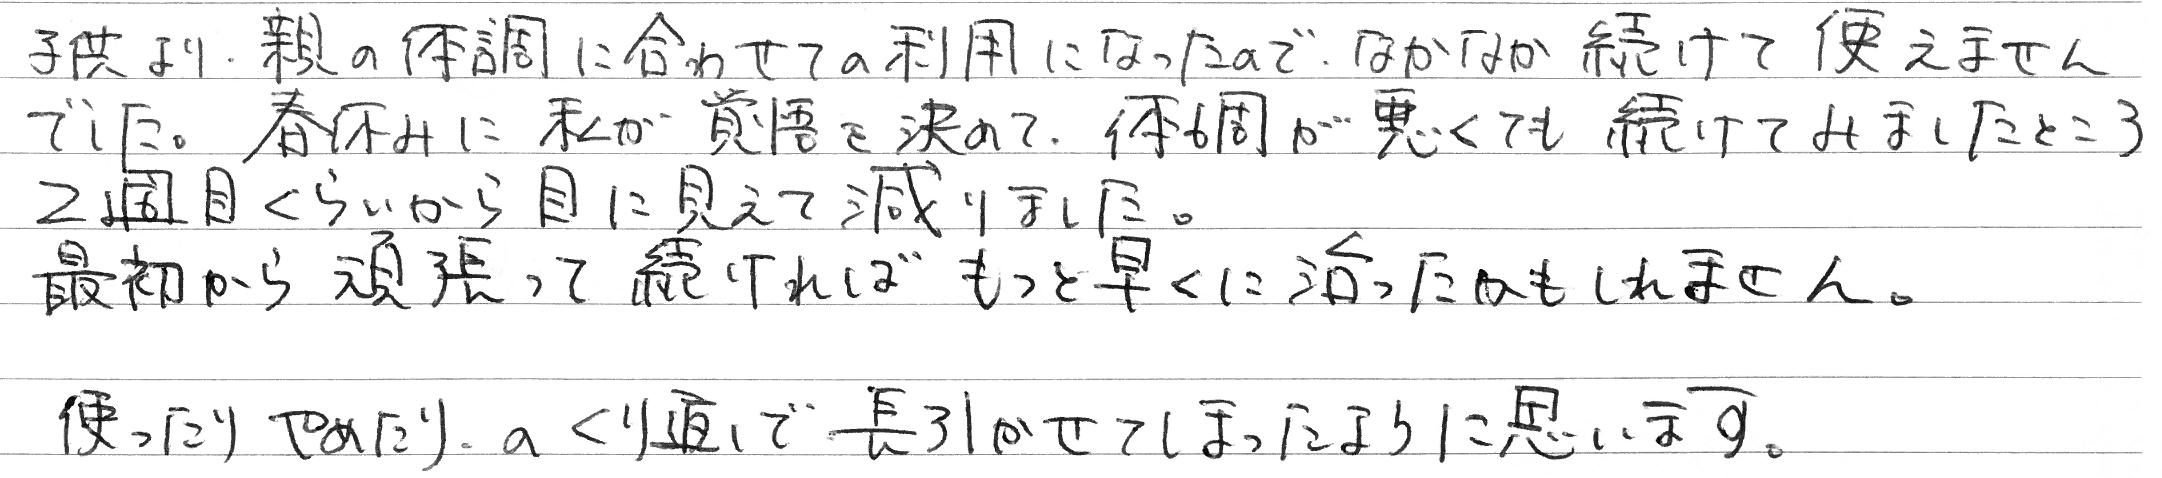 子供より、親の体調に合わせての利用になったので、なかなか続けて使えません
でした。春休みに私が覚悟を決めて、体調が悪くても続けてみましたところ
2週目くらいから目に見えて減りました。
最初から頑張って続ければもっと早くに治ったかもしれません。
使ったりやめたり、のくり返しで長引かせてしまったように思います。